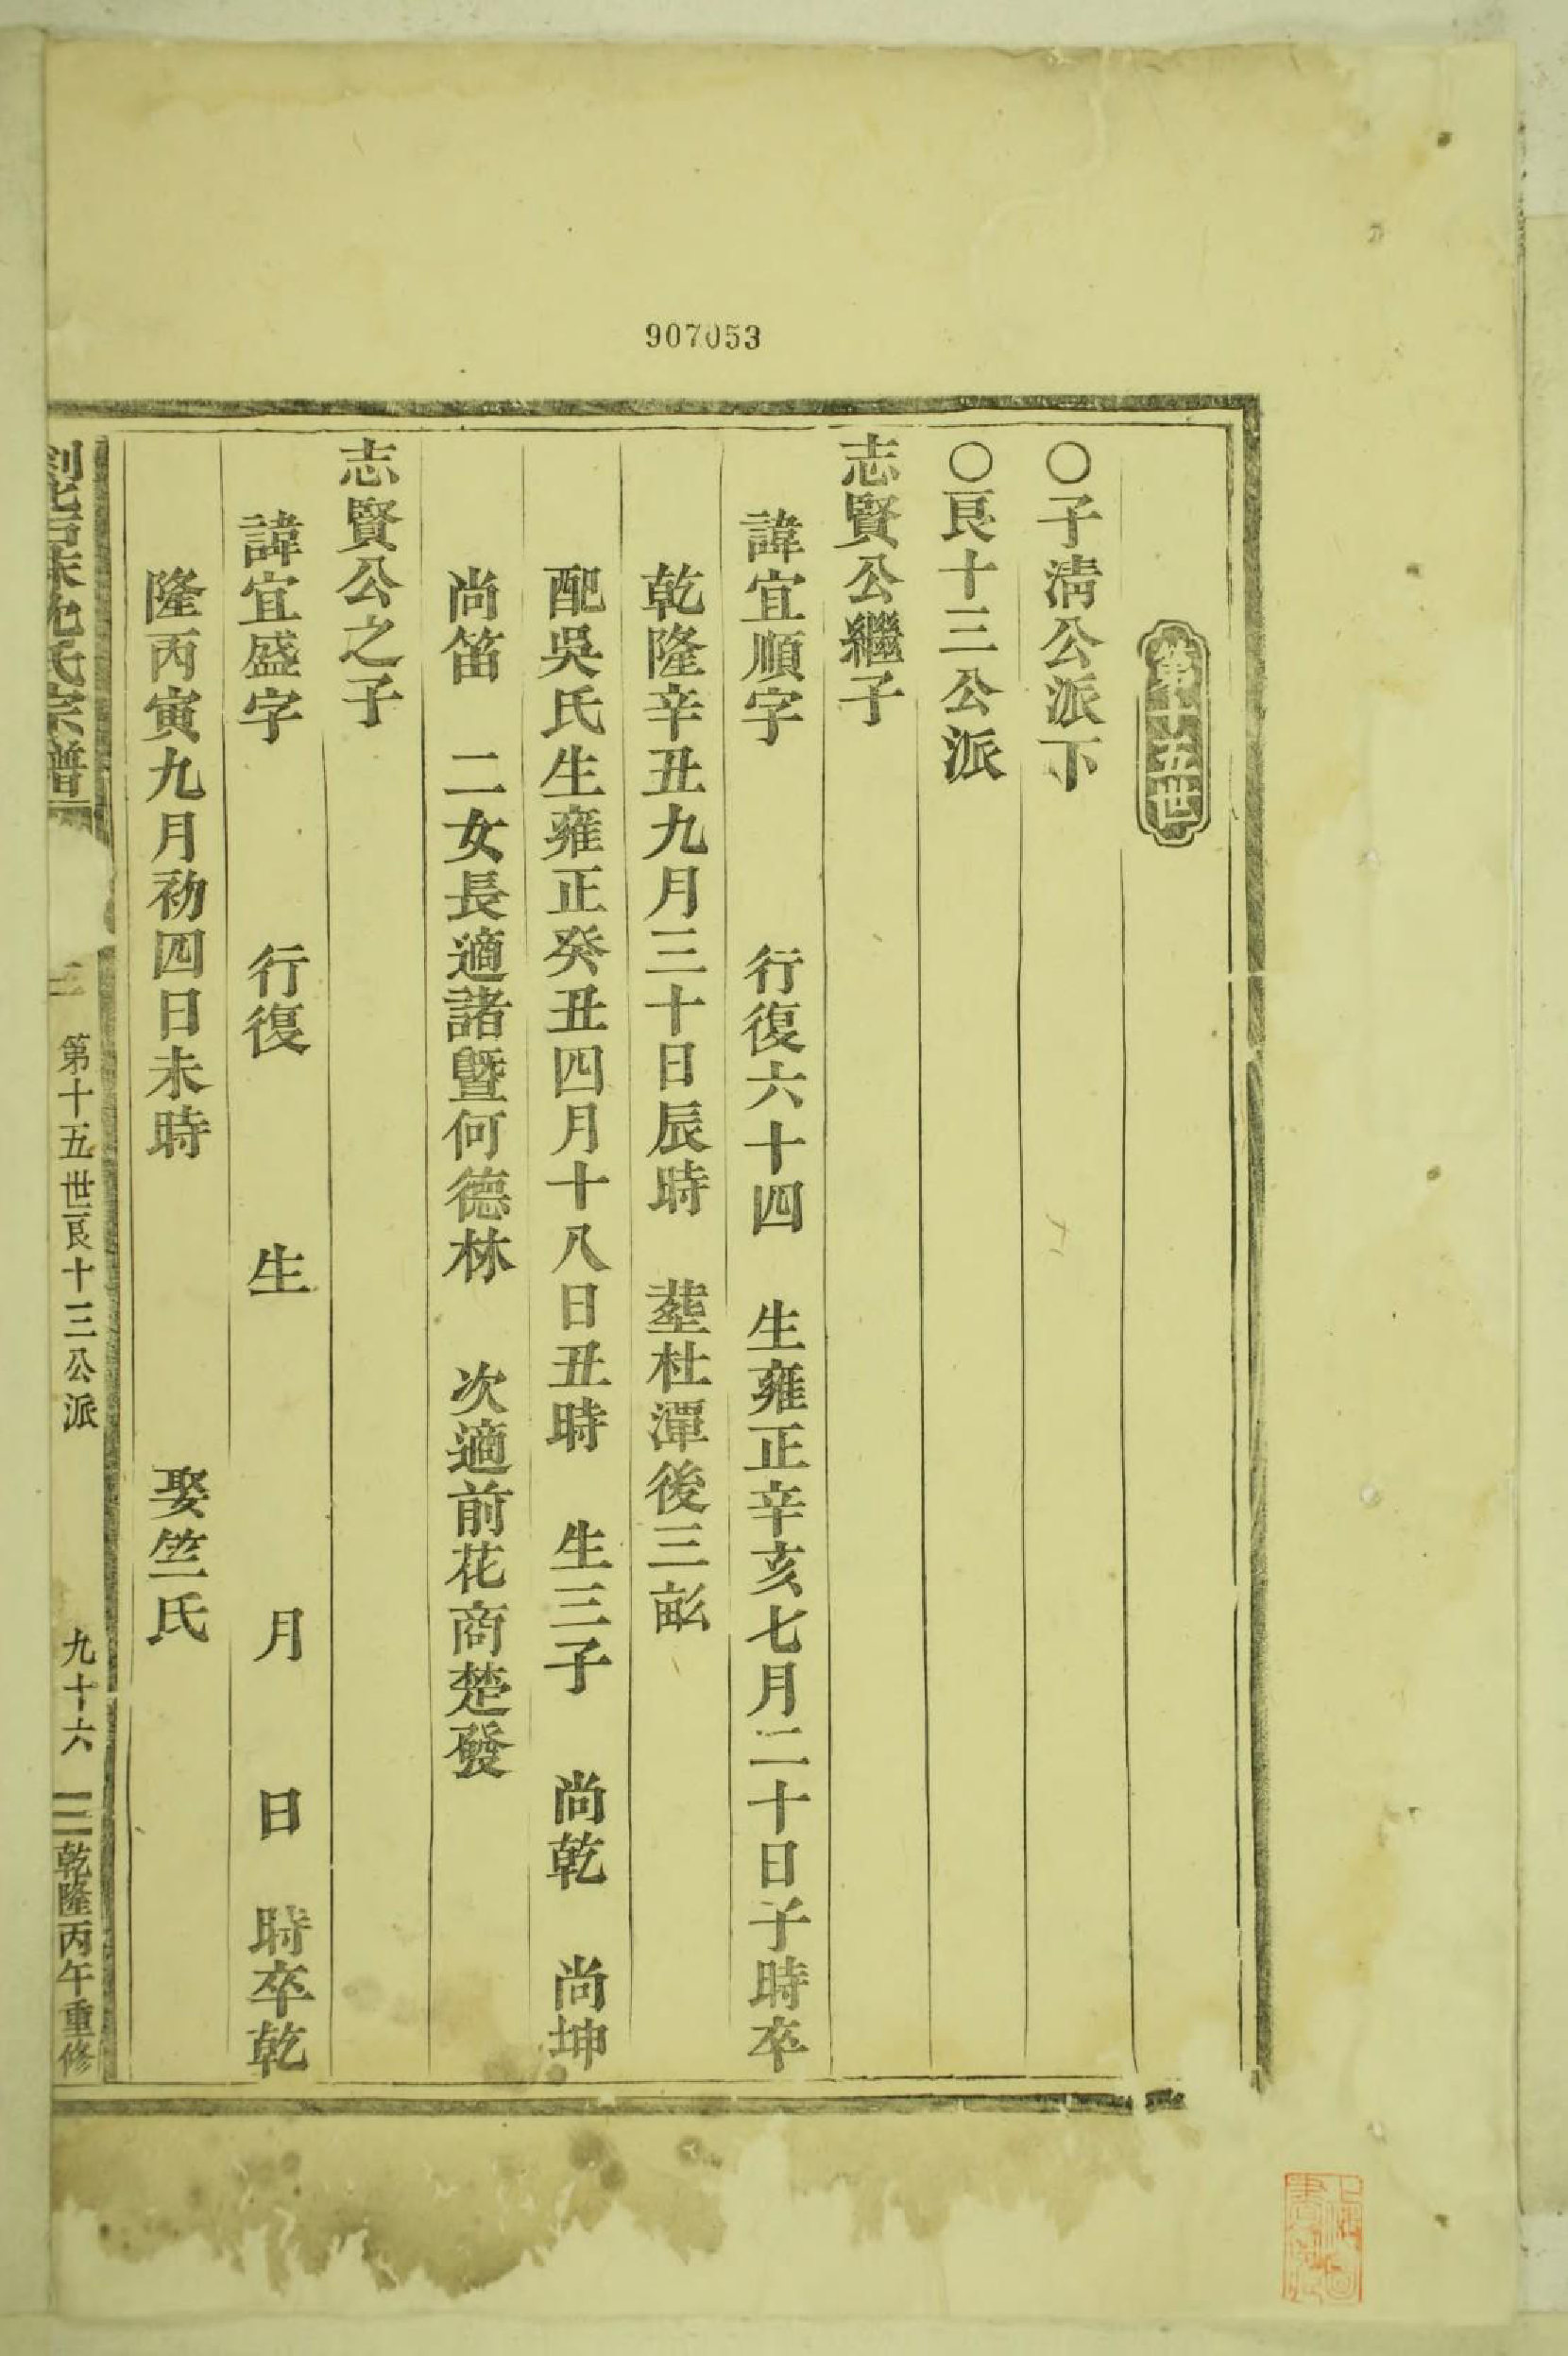 907053
第十五世
○子淸公派下
○艮十三公派
志賢公繼子
諱宜順字　行復六十四　生雍正辛亥七月二十日子時卒
乾隆辛丑九月三十日辰時　塟杜潭後三畝
配吳氏生雍正癸丑四月十八日丑時　生三子　尚乾　尚坤
尚笛　二女長適諸暨何德林　次適前花商楚發
志賢公之子
諱宜盛字　行復　生　月　日　時卒乾
隆丙寅九月初四日未時　娶竺氏
氏宗譜　第十五世艮十三公派　九十六　乾隆丙午重修